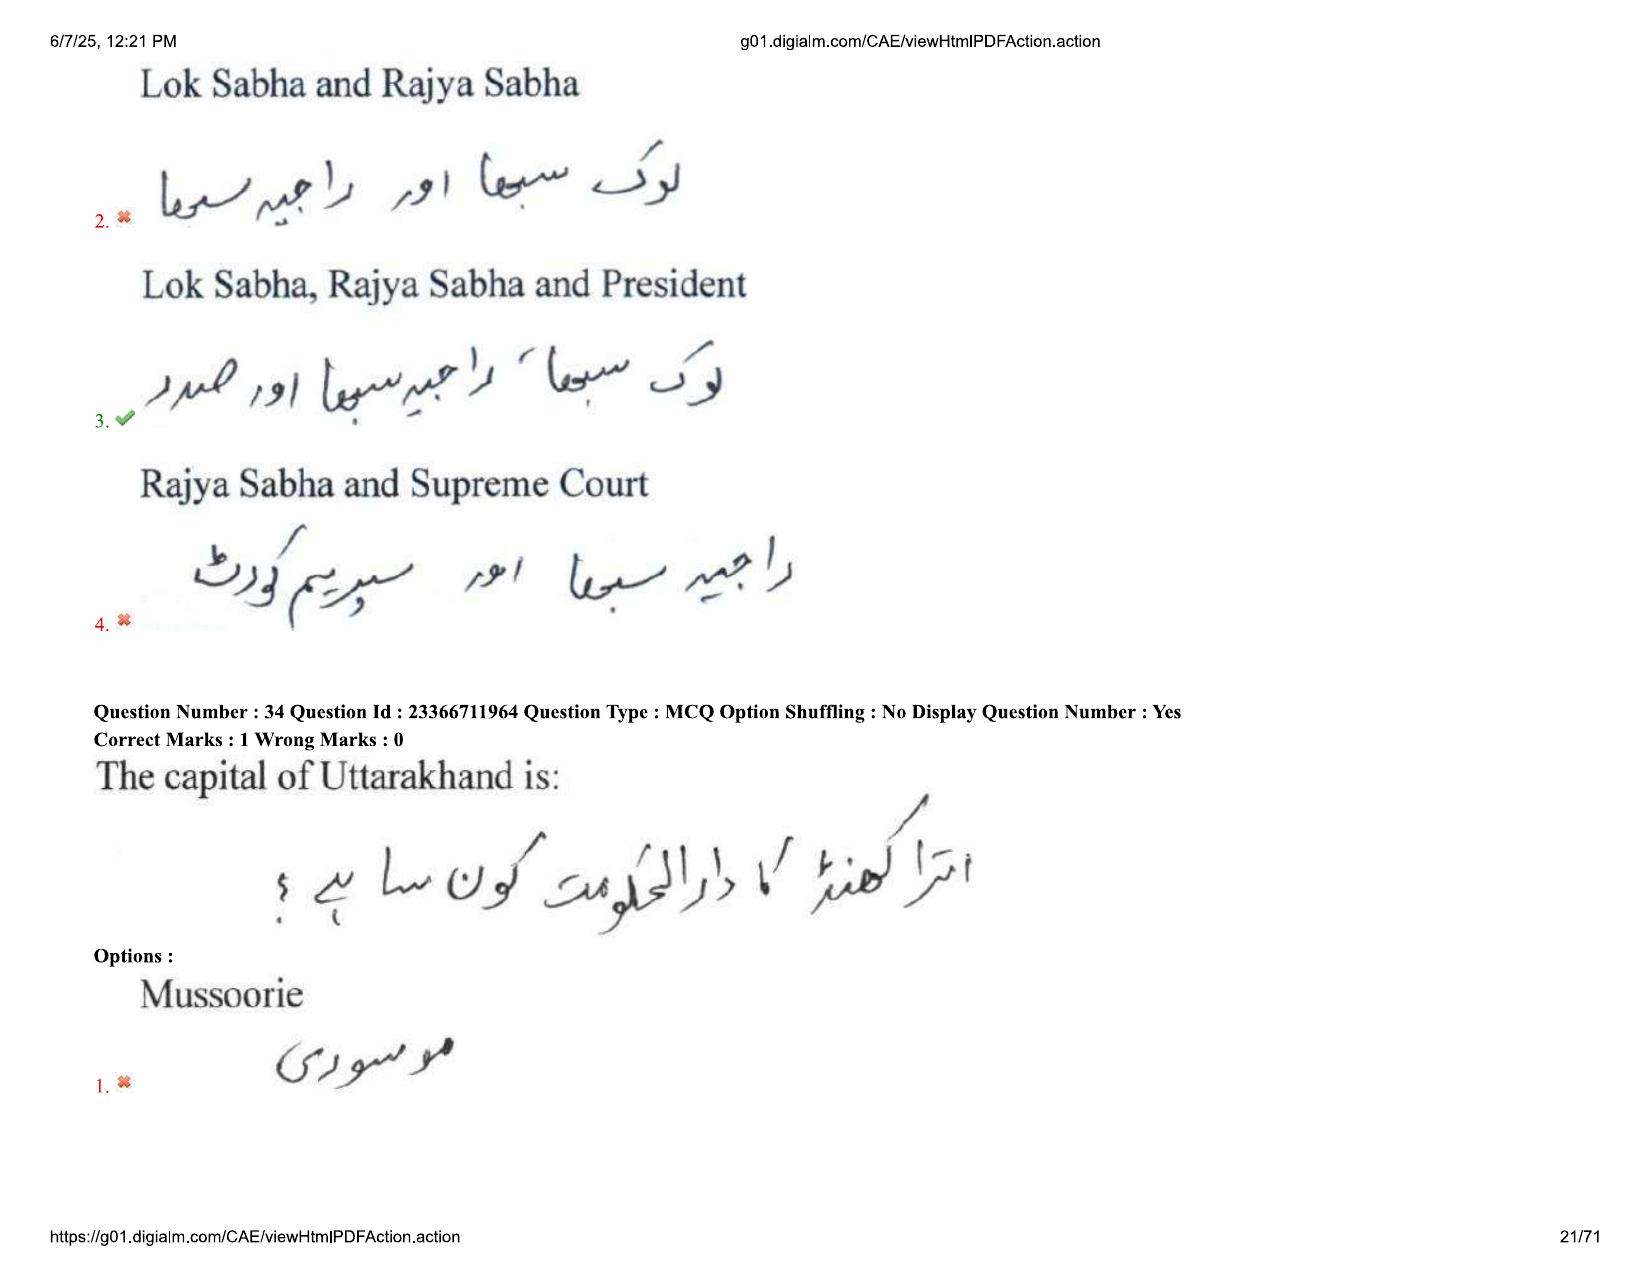 6/7/25, 12:21 PM g01.digialm.com/CAE/viewHtmlPDFAction.action
Lok Sabha and Rajya Sabha
لوک سبھا اور راجیہ سبھا
2.
Lok Sabha, Rajya Sabha and President
لوک سبھا، راجیہ سبھا اور صدر
3.
Rajya Sabha and Supreme Court
راجیہ سبھا اور سپریم کورٹ
4.
Question Number : 34 Question Id : 23366711964 Question Type : MCQ Option Shuffling : No Display Question Number : Yes
Correct Marks : 1 Wrong Marks : 0
The capital of Uttarakhand is:
اترا کھنڈ کا دارالحکومت کون سا ہے ؟
Options :
Mussoorie
موسوری
1.
https://g01.digialm.com/CAE/viewHtmlPDFAction.action 21/71